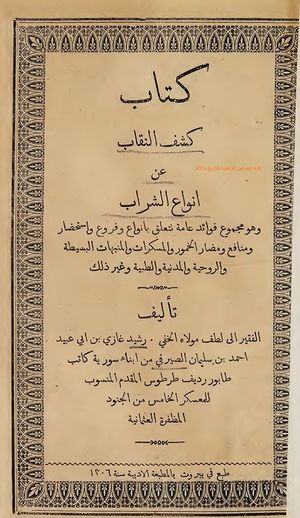 كتاب
كشف النقاب
عن
انواع الشراب
وهو مجموع فوائد عامة تتعلق بانواع وفروع واستحضار
ومنافع ومضار الخمور والمسكرات والمنبهات البسيطة
والروحية والمدنية والطبية وغير ذلك
تأليف
الفقير الى لطف مولاه الخفي . رشيد غازي بن ابي عبيد
احمد بن سليمان الصيرفي من ابناء سورية كاتب
طابور رديف طرطوس المقدم المنسوب
للمعسكر الخامس من الجنود
المظفرة العثمانية
طبع في بيروت بالمطبعة الادبية سنة ١٣٠٦